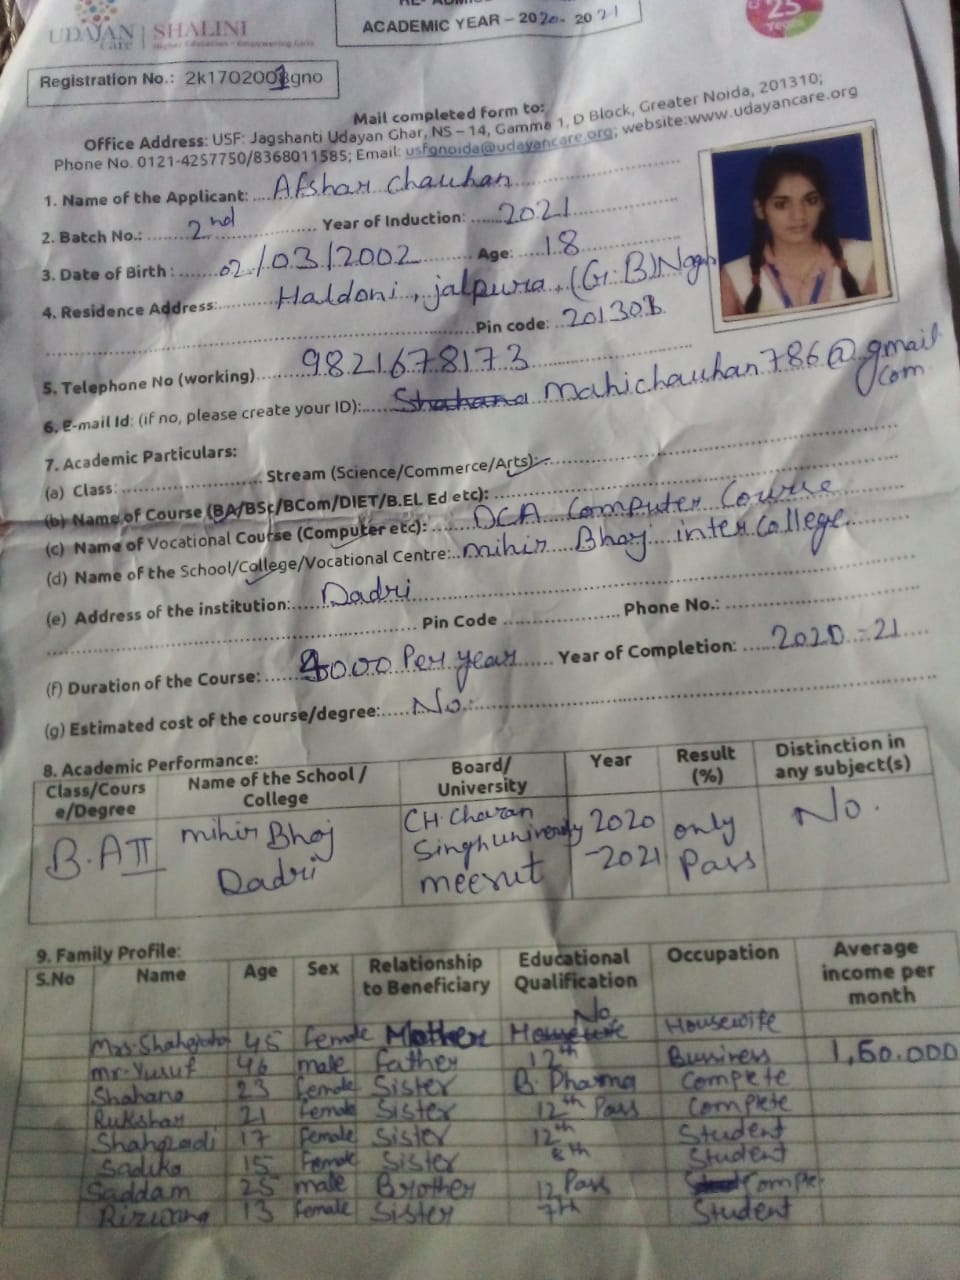 UDAYAN care | SHALINI
Higher Education - Empowering Girls
ACADEMIC YEAR – 2020- 2021
25
Years
Registration No.: 2k1702001gno
Mail completed form to:
Office Address: USF: Jagshanti Udayan Ghar, NS – 14, Gamma 1, D Block, Greater Noida, 201310;
Phone No. 0121-4257750/8368011585; Email: usfgnoida@udayancare.org; website:www.udayancare.org
1. Name of the Applicant: Afshar Chauhan
2. Batch No.: 2nd Year of Induction: 2021
3. Date of Birth : 02/03/2002 Age: 18
4. Residence Address: Haldoni, jalpura, (Gr. B)
Pin code: 201308
5. Telephone No (working) 9821678173
6. E-mail Id: (if no, please create your ID): Shahana mahichauhan786@gmail
com
7. Academic Particulars:
(a) Class: Stream (Science/Commerce/Arts):
(b) Name of Course (BA/BSc/BCom/DIET/B.EL Ed etc):
(c) Name of Vocational Course (Computer etc): DCA Computer Course
(d) Name of the School/College/Vocational Centre: mihir Bhoj inter College
(e) Address of the institution: Dadri
Pin Code Phone No.:
(f) Duration of the Course: 4000 Per year Year of Completion: 2020-21
(g) Estimated cost of the course/degree: No.
8. Academic Performance:
Class/Cours e/Degree Name of the School / College Board/ University Year Result (%) Distinction in any subject(s)
B.A II mihir Bhoj Dadri CH. Charan Singh University meerut 2020 -2021 only Pass No.
9. Family Profile:
S.No Name Age Sex Relationship to Beneficiary Educational Qualification Occupation Average income per month
Mrs. 45 female Mother No Housewife
mr. Yusuf 46 male Father 12th Bussiness 1,60.000
Shahana 23 female Sister B. Pharma Compete
Rukshar 21 female Sister 12th Pass Complete
Shahzadi 17 female Sister 12th Student
Sadika 15 female Sister 8th Student
Saddam 25 male Brother 12 Pass Comple
Rizwana 13 female Sister 7th Student